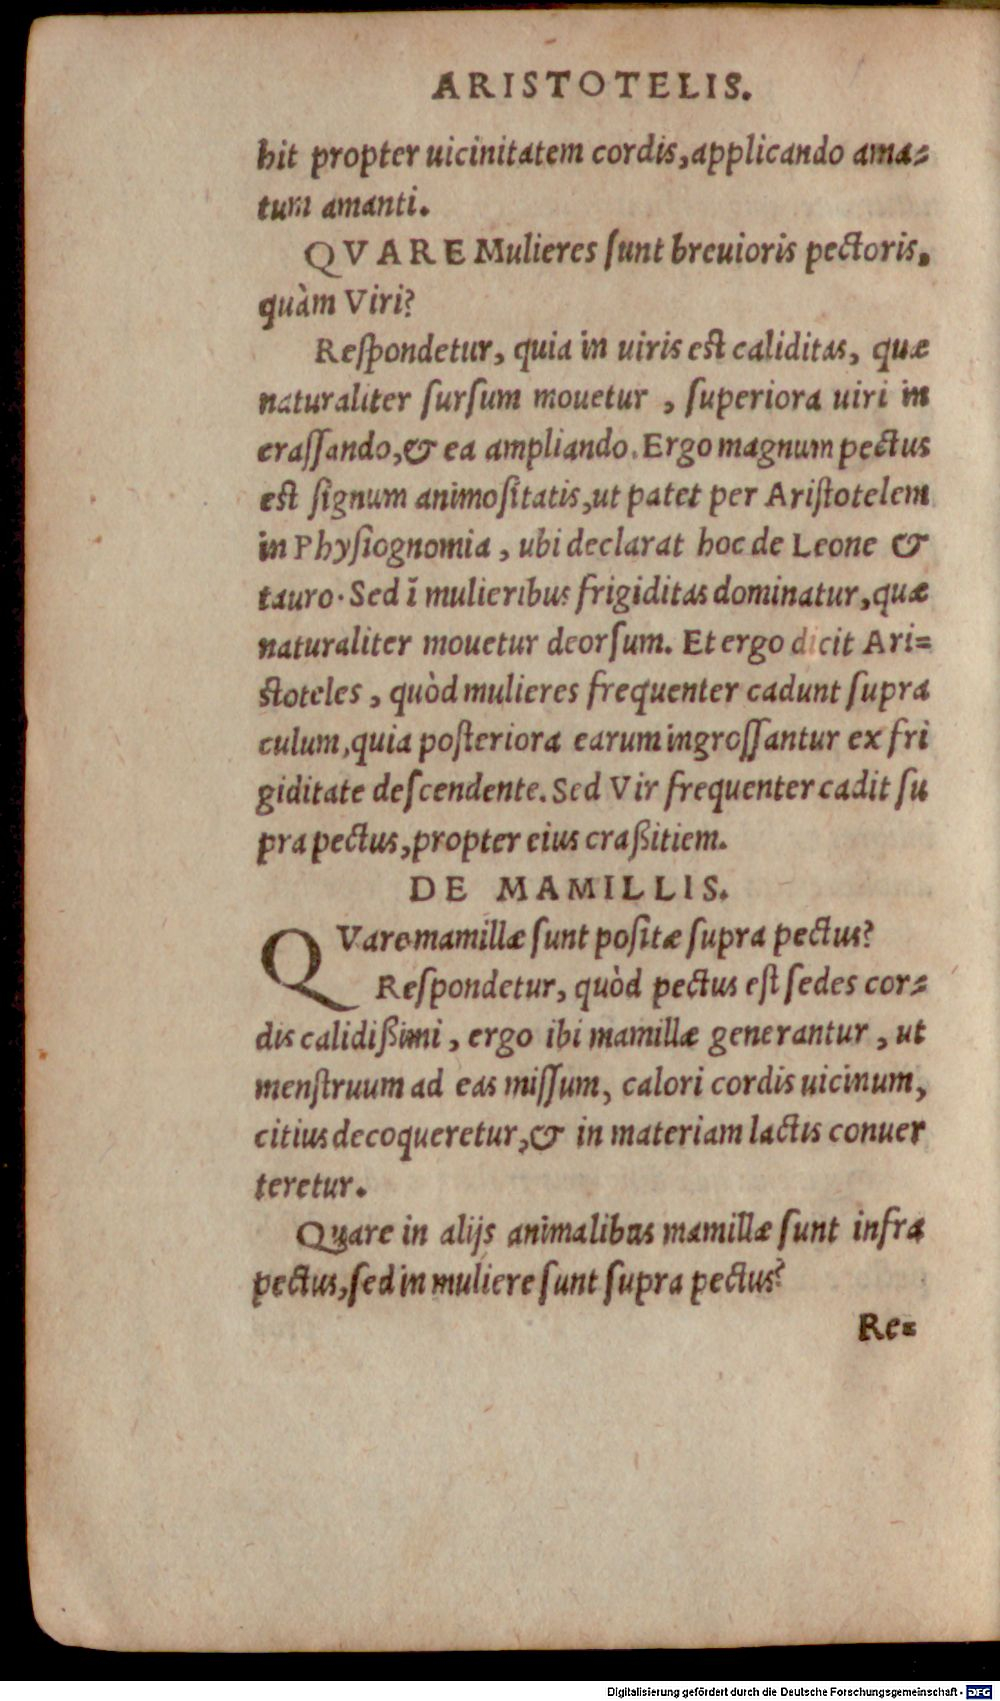 ARISTOTELIS.
bit propter uicinitatem cordis, applicando ama=
tum amanti.
QVARE Mulieres ſunt breuioris pectoris,
quàm Viri?
Reſpondetur, quia in uiris eſt caliditas, quæ
naturaliter ſurſum mouetur , ſuperiora uiri in
craſſando, & ea ampliando. Ergo magnum pectus
eſt ſignum animoſitatis, ut patet per Ariſtotelem
in Phyſiognomia , ubi declarat hoc de Leone &
tauro. Sed ī mulieribus frigiditas dominatur, quæ
naturaliter mouetur deorſum. Et ergo dicit Ari=
ſtoteles , quòd mulieres frequenter cadunt ſupra
culum, quia poſteriora earum ingroſſantur ex fri
giditate deſcendente. Sed Vir frequenter cadit ſu
pra pectus, propter eius craßitiem.
DE MAMILLIS.
QVare mamillæ ſunt poſitæ ſupra pectus?
Reſpondetur, quòd pectus eſt ſedes cor=
dis calidißimi , ergo ibi mamillæ generantur , ut
menſtruum ad eas miſſum, calori cordis uicinum,
citius decoqueretur, & in materiam lactis conuer
teretur.
Quare in alijs animalibus mamillæ ſunt infra
pectus, ſed in muliere ſunt ſupra pectus?
Re=
Digitalisierung gefördert durch die Deutsche Forschungsgemeinschaft - DFG